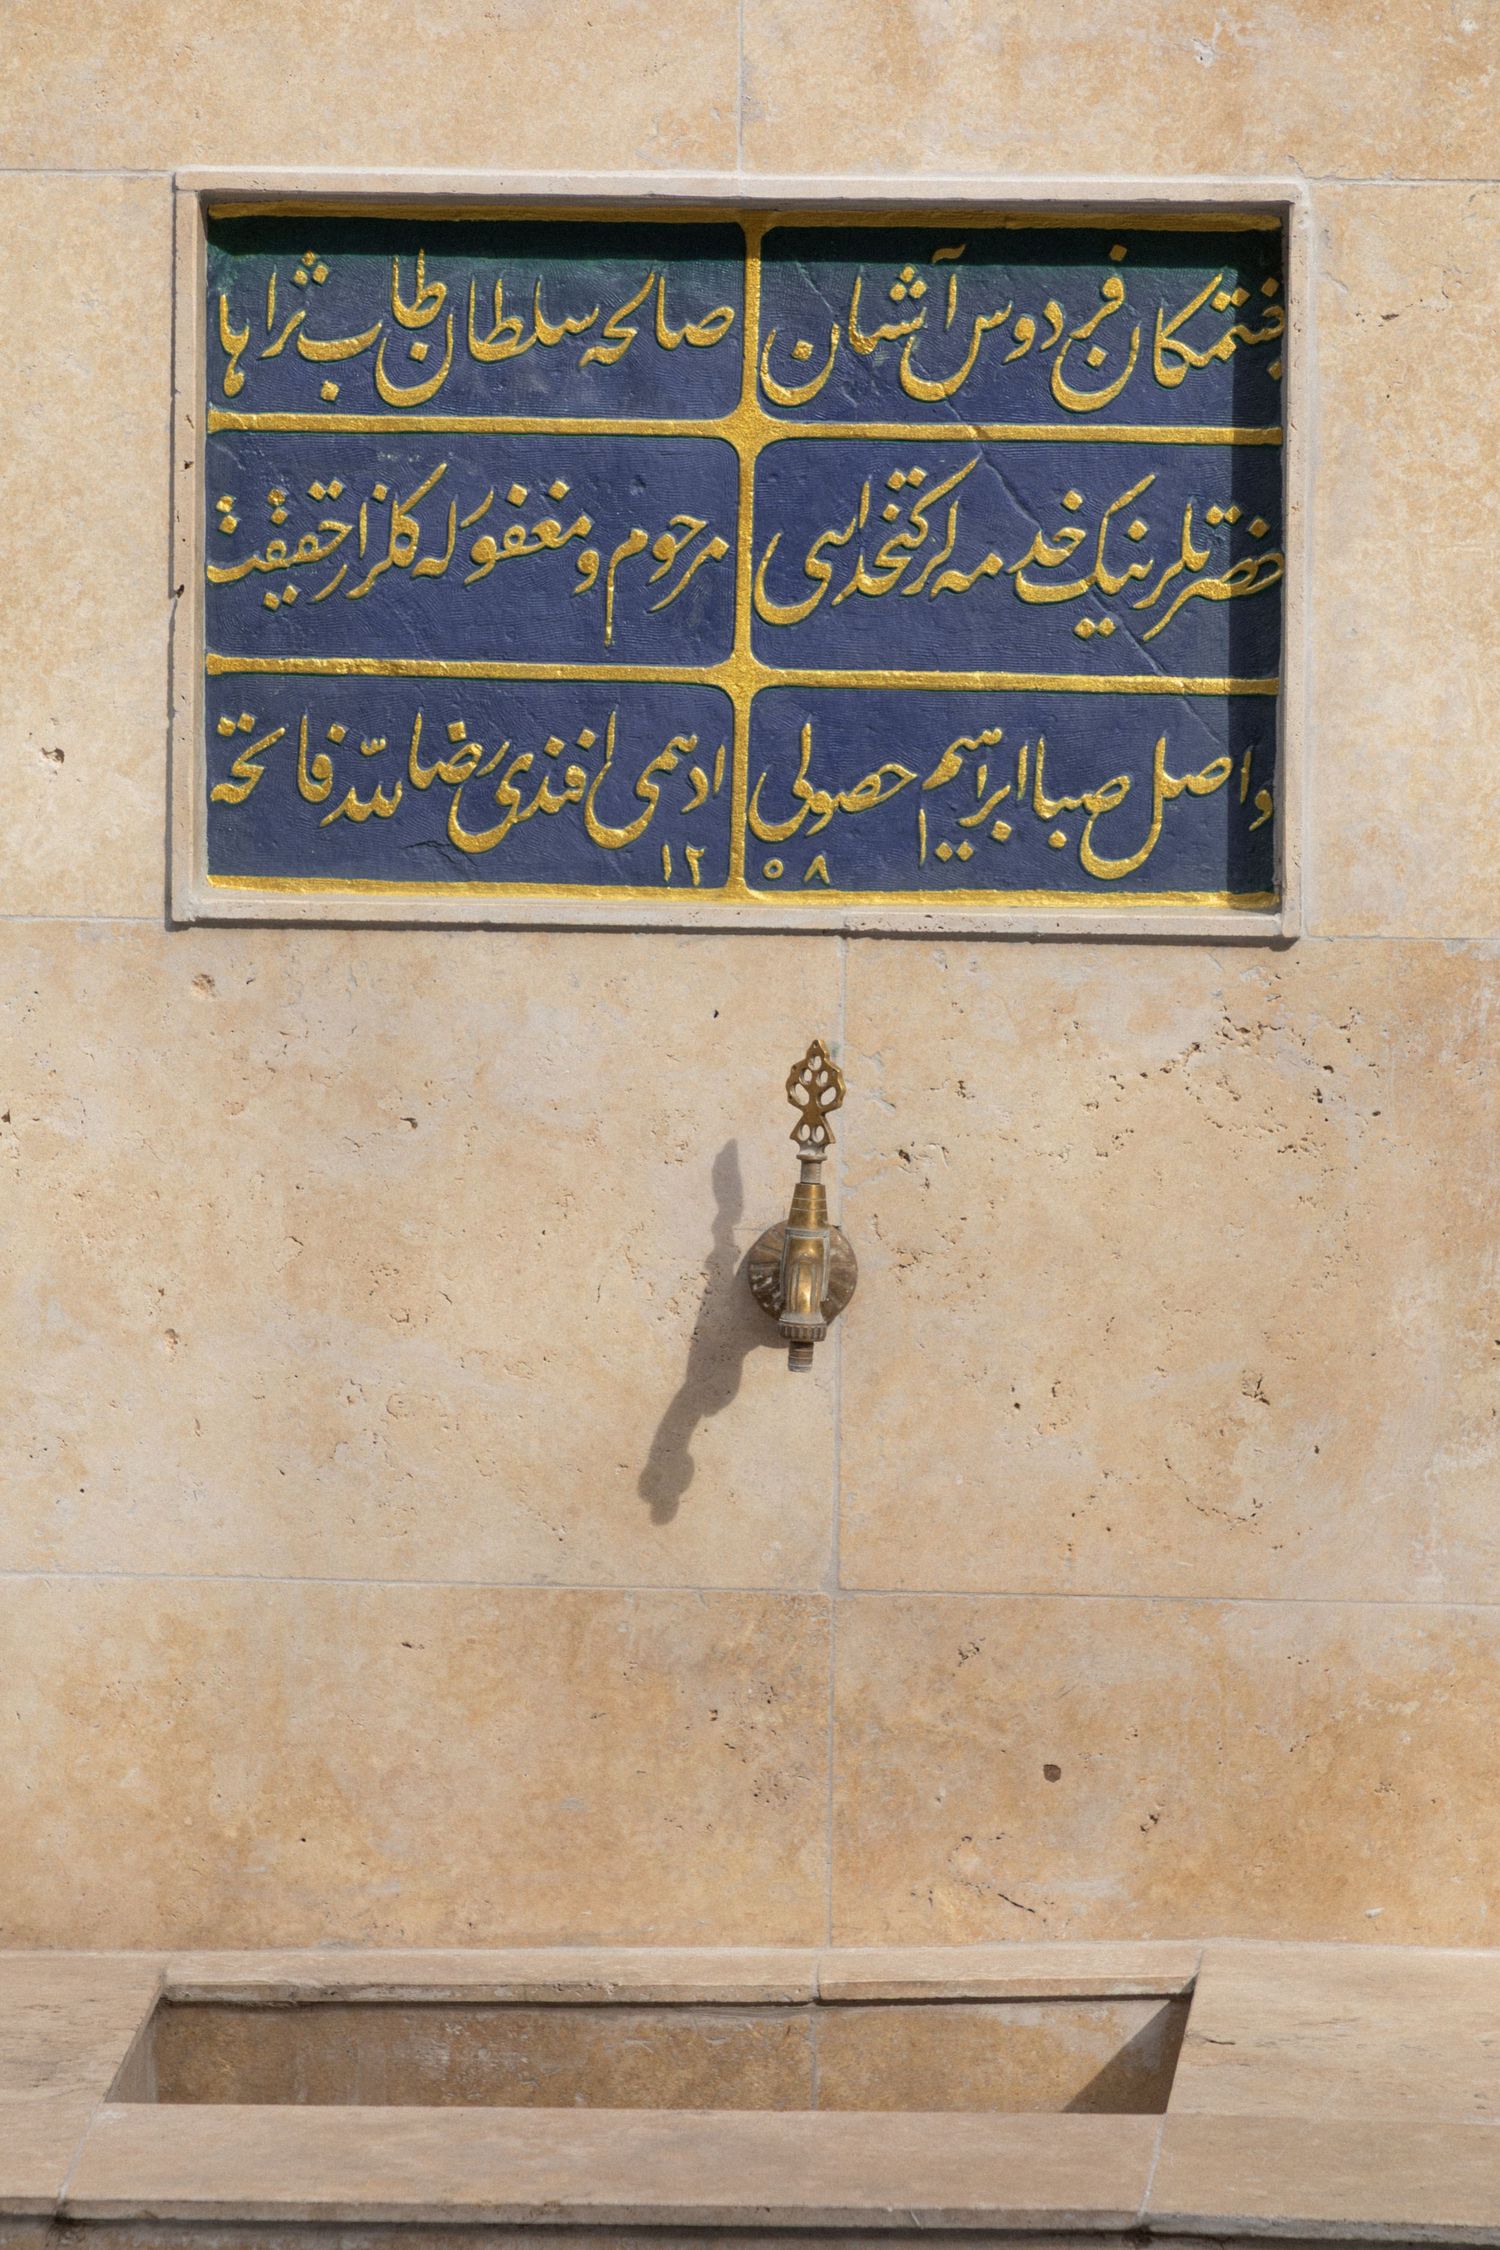 جنتمكان فردوس آشيان صالحه سلطان طاب ثراها
حضرتلرينك خدمه لر كتخداسى مرحوم و مغفور له كلزار حقيقته
واصل صبا ابراهيم حصولى ادهمى افندى رضاء لله فاتحه
١٢٠٨